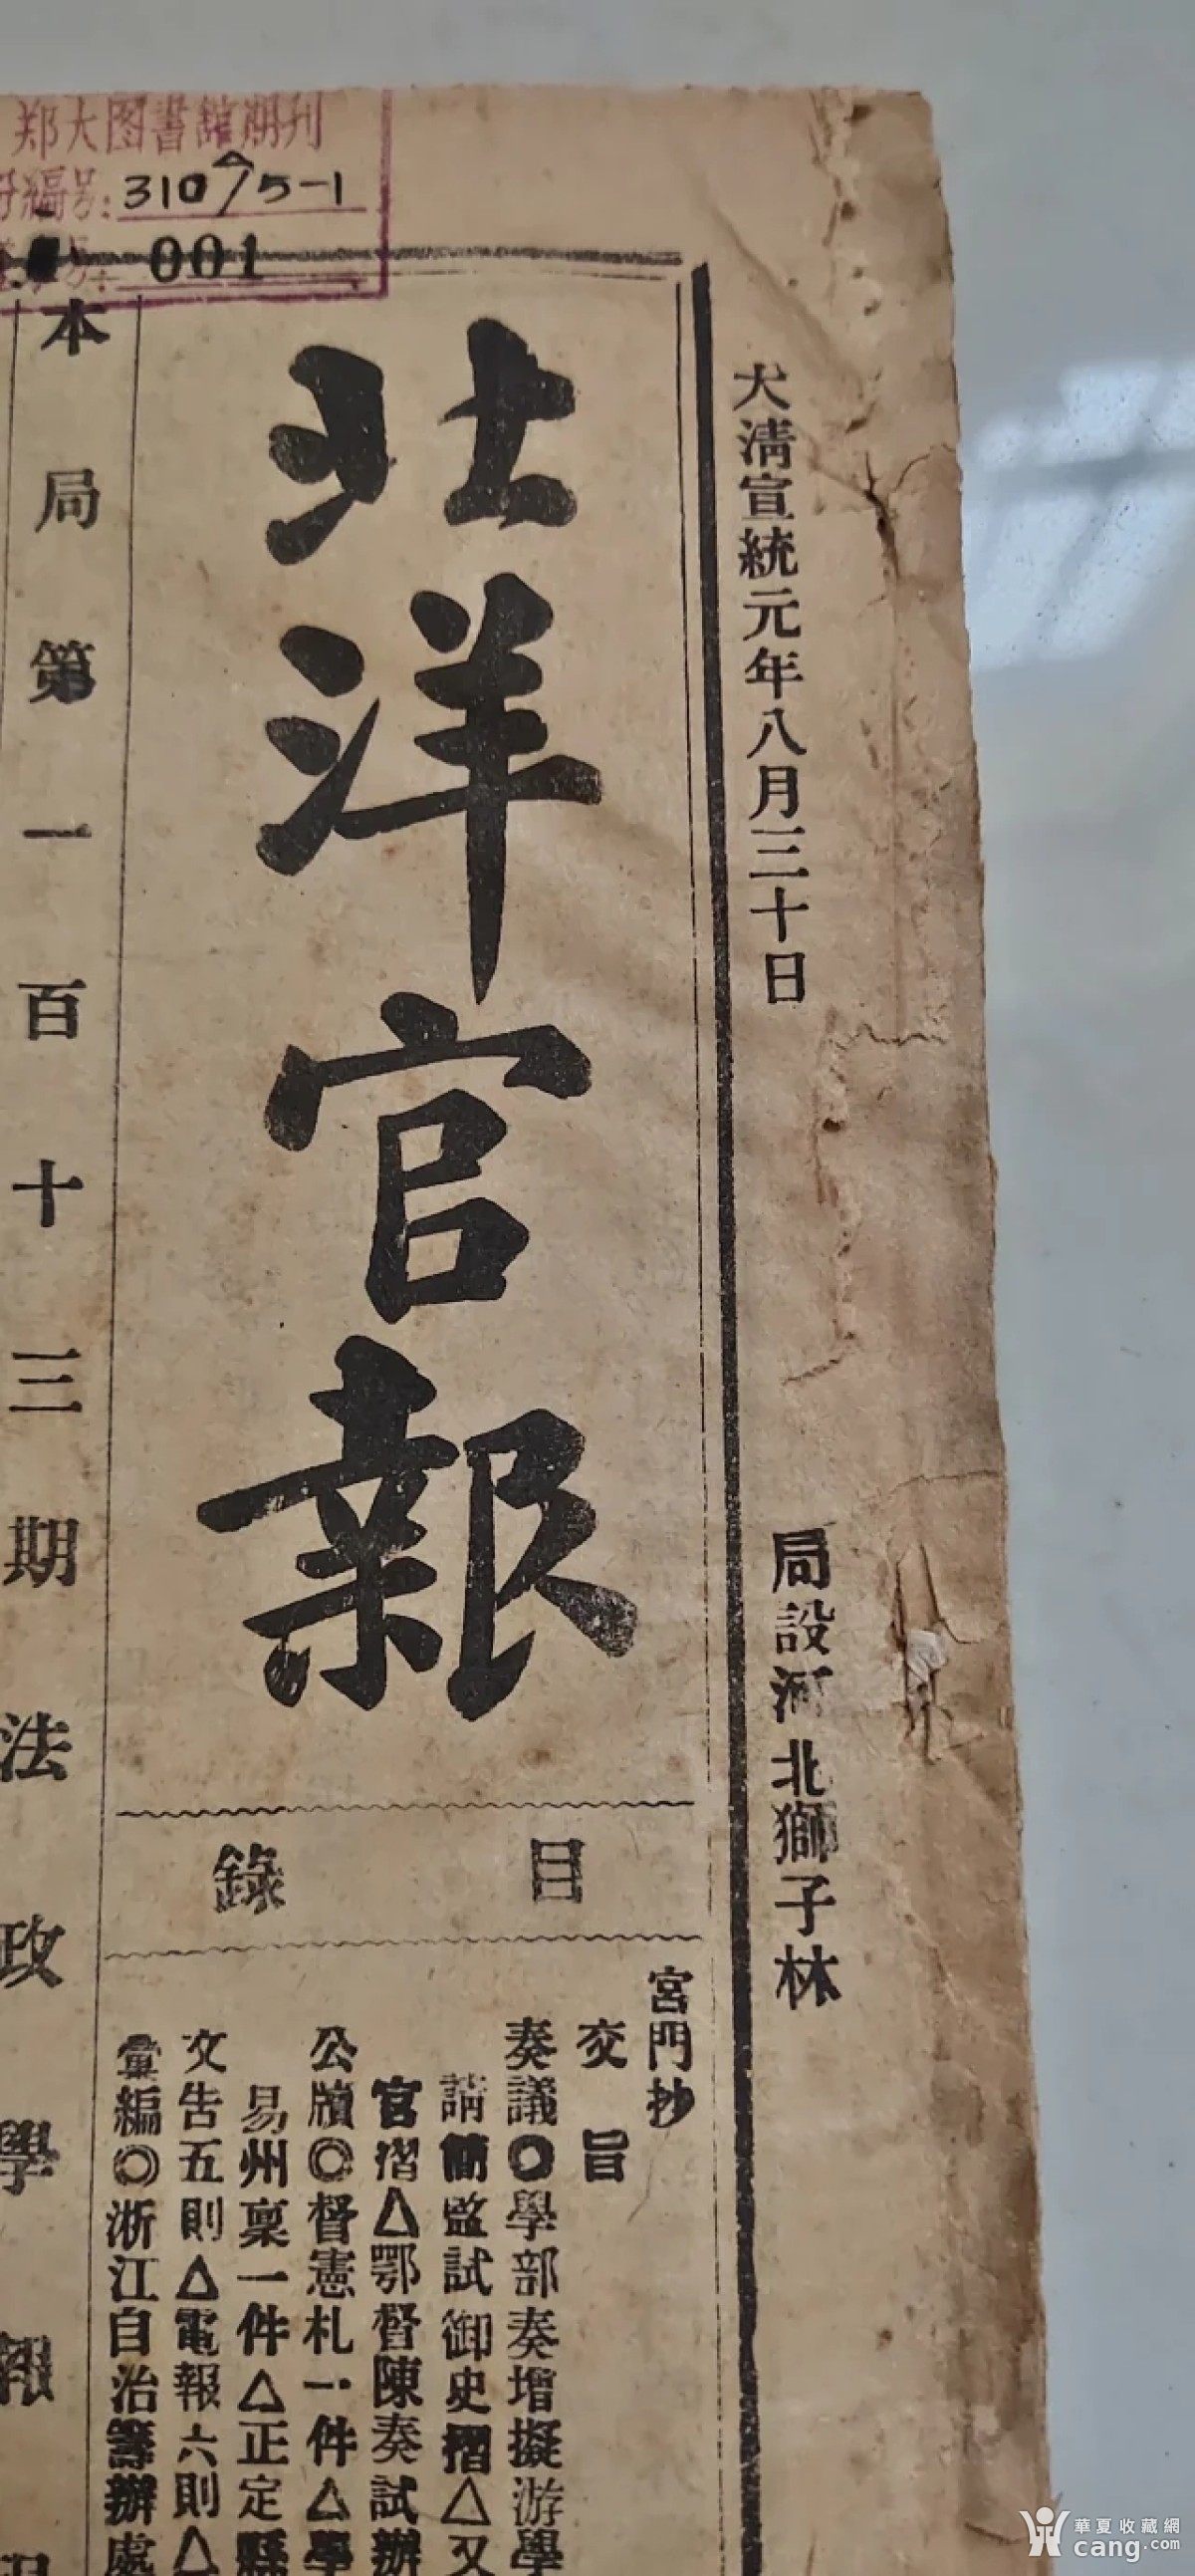 郑大图書館期刊
編号: 31075-1
001
大清宣統元年八月三十日
局設河北獅子林
北洋官報
目錄
宮門抄
交旨
奏議◎學部奏增擬游學
請簡監試御史摺△又
官摺△鄂督陳奏試辦
公牘◎督憲札一件△學
易州稟一件△正定縣
文告五則△電報六則△
彙編◎浙江自治籌辦處
本局第一百十三期法政學報
華夏收藏網
cang.com